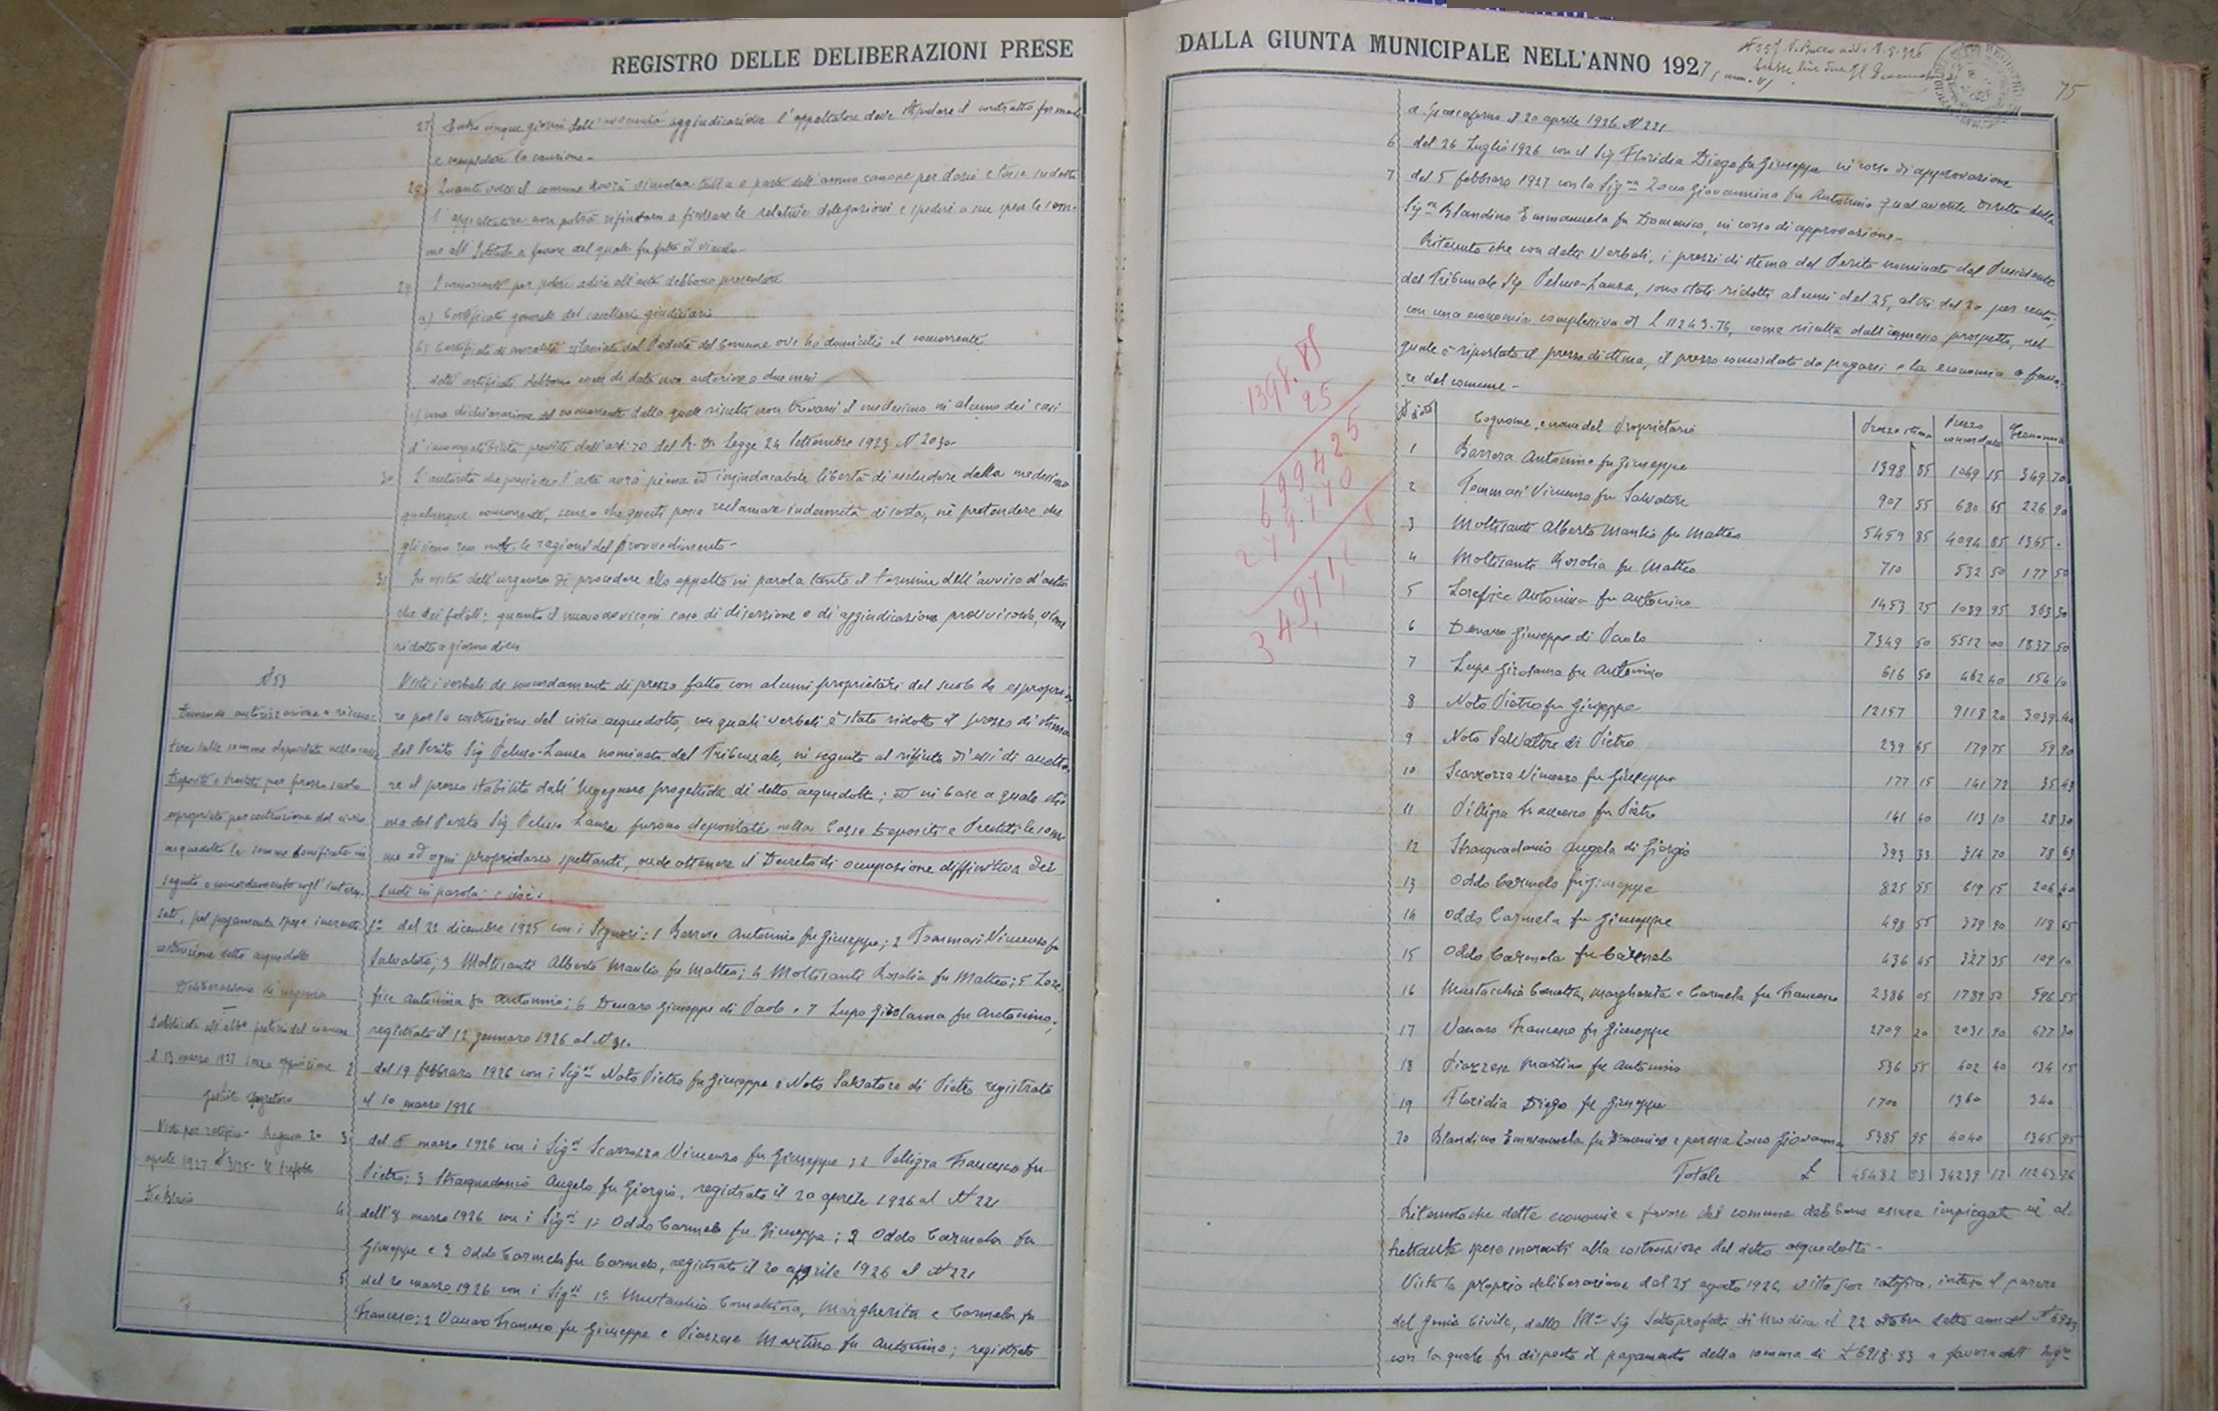 REGISTRO DELLE DELIBERAZIONI PRESE
27 Entro cinque giorni dall' aggiudicazione l'appaltatore deve stipulare il contratto formale
e completare la cauzione -
28 Quante volte il comune dovrà vincolare tutta o parte dell'annuo canone per dazi e tasse
l'appaltatore non potrà rifiutarsi a firmare le relative delegazioni e spedire a sue spese le som-
me all'Istituto a favore del quale fu fatto il vincolo -
29 I concorrenti per potere adire all'asta debbono presentare
a) Certificato generale del casellario giudiziario
b) Certificato di moralità rilasciato dal Podestà del Comune ove ha domicilio il concorrente
detti certificati debbono essere di data non anteriore a due mesi
c) una dichiarazione del concorrente dalla quale risulti non trovarsi il medesimo in alcuno dei casi
d'incompatibilità previsti dall'art. 70 del R. D. Legge 24 Settembre 1923 N 2030
30 L'autorità che presiede l'asta avrà piena ed insindacabile libertà di escludere dalla medesima
qualunque concorrente, senza che questi possa reclamare indennità di sorta, nè pretendere che
gli siano rese note le ragioni del provvedimento -
31 In vista dell'urgenza di procedere allo appalto in parola tanto il termine dell'avviso d'asta
che dei fatali; quanto il nuovo avviso in caso di diserzione o di aggiudicazione provvisoria, viene
ridotto a giorni dieci
N 53
Domanda autorizzazione a riscuo-
tere dalle somme depositate nella cassa
Depositi e Prestiti per prezzo suolo
espropriato per costruzione del civico
acquedotto le somme bonificate in
seguito a concordamento cogl'interes-
sati, pel pagamento spese inerenti
costruzione detto acquedotto
Deliberazione di urgenza
Pubblicata all'albo pretorio del comune
il 13 marzo 1927 senza opposizione
Segretario
Visto per ratifica - Ragusa 20
aprile 1927 Il Prefetto
De Blasio
Visti i verbali di concordamento di prezzo fatto con alcuni proprietari del suolo da espropria-
re per la costruzione del civico acquedotto, con quali verbali è stato ridotto il prezzo di stima
del Perito Sig Peluso-Lauza nominato dal Tribunale, in seguito al rifiuto di essi di accetta-
re il prezzo stabilito dall'Ingegnere progettista di detto acquedotto; ed in base a quale sti-
ma del Perito Sig Peluso Lauza furono depositate nella Cassa Depositi e Prestiti le som-
me ad ogni proprietario spettanti, onde ottenere il Decreto di occupazione diffinitiva dei
suoli in parola; e cioè:
1° del 22 dicembre 1925 con i Signori: 1 Barrera Antonino fu Giuseppe; 2 Tommasi Vincenzo fu
Salvatore; 3 Moltisanti Alberto Manlio fu Matteo; 4 Moltisanti Rosolia fu Matteo; 5 Lore-
fice Antonina fu Antonino; 6 Denaro Giuseppe di Paolo e 7 Lupo Girolama fu Antonino;
registrato il 12 gennaro 1926 al N 31.
2 del 19 febbraro 1926 con i Sigri Noto Pietro fu Giuseppe e Noto Salvatore di Pietro registrato
il 10 marzo 1926
3 del 8 marzo 1926 con i Sigri Scarrozza Vincenzo fu Giuseppe; 2 Pelligra Francesco fu
Pietro; 3 Stracquadanio Angela fu Giorgio, registrato il 20 aprile 1926 al N 221
4 dell'8 marzo 1926 con i Sigri 1: Oddo Carmelo fu Giuseppe; 2 Oddo Carmela fu
Giuseppe e 3 Oddo Carmela fu Carmelo, registrato il 20 aprile 1926 al N 221
5 del 20 marzo 1926 con i Sigri 1° Mustacchio Concettina, Margherita e Carmela fu
Francesco; 2 Vanaro Francesco fu Giuseppe e Piazzese Martino fu Antonino; registrato
DALLA GIUNTA MUNICIPALE NELL'ANNO 1927
75
a Spaccaforno il 20 aprile 1926 N 221
6 del 26 Luglio 1926 con il Sig Floridia Diego fu Giuseppe in corso di approvazione
7 del 5 febbraro 1927 con la Sigra Zocco Giovannina fu Antonino quale avente diritto della
Sigra Blandino Emmanuela fu Domenico, in corso di approvazione -
Ritenuto che con detti verbali, i prezzi di stima del Perito nominato dal Presidente
del Tribunale Sig Peluso-Lauza, sono stati ridotti alcuni del 25, altri del 20 per cento,
con una economia complessiva di L 11243.76, come risulta dall'annesso prospetto, nel
quale è riportato il prezzo di stima, il prezzo concordato da pagarsi e la economia a favo-
re del comune -
1398.85
25
699425
279770
349,71
Cognome e nome del Proprietario Prezzo stima Prezzo concordato Economia
1 Barrera Antonino fu Giuseppe 1398 85 1049 15 349 70
2 Tommasi Vincenzo fu Salvatore 907 55 680 65 226 90
3 Moltisanti Alberto Manlio fu Matteo 5459 85 4094 85 1365 -
4 Moltisanti Rosolia fu Matteo 710 532 50 177 50
5 Lorefice Antonina fu Antonino 1453 25 1089 95 363 30
6 Denaro Giuseppe di Paolo 7349 50 5512 00 1837 50
7 Lupo Girolama fu Antonino 616 50 462 40 154 10
8 Noto Pietro fu Giuseppe 12157 9118 20 3039 40
9 Noto Salvatore di Pietro 239 65 179 75 59 90
10 Scarrozza Vincenzo fu Giuseppe 177 15 141 72 35 43
11 Pelligra Francesco fu Pietro 141 40 113 10 28 30
12 Stracquadanio Angela di Giorgio 393 33 314 70 78 63
13 Oddo Carmelo fu Giuseppe 825 55 619 15 206 40
14 Oddo Carmela fu Giuseppe 498 55 379 90 118 65
15 Oddo Carmela fu Carmelo 436 45 327 35 109 10
16 Mustacchio Concetta, Margherita e Carmela fu Francesco 2386 05 1789 50 596 55
17 Vanaro Francesco fu Giuseppe 2709 20 2031 90 677 30
18 Piazzese Martino fu Antonino 536 55 402 40 134 15
19 Floridia Diego fu Giuseppe 1700 1360 340
20 Blandino Emmanuela fu Domenico e per essa Zocco Giovanna 5385 95 4040 1345 95
Totale £ 45482 93 34239 17 11243 76
Ritenuto che dette economie a favore del comune debbono essere impiegate in al-
trettante spese inerenti alla costruzione del detto acquedotto -
Vista la propria deliberazione del 25 agosto 1926, vista per ratifica, inteso il parere
del Genio Civile, dallo Ill.mo Sig Sottoprefetto di Modica il 22 ottobre detto anno al N
con la quale fu disposto il pagamento della somma di £ 6918.83 a favore dell'